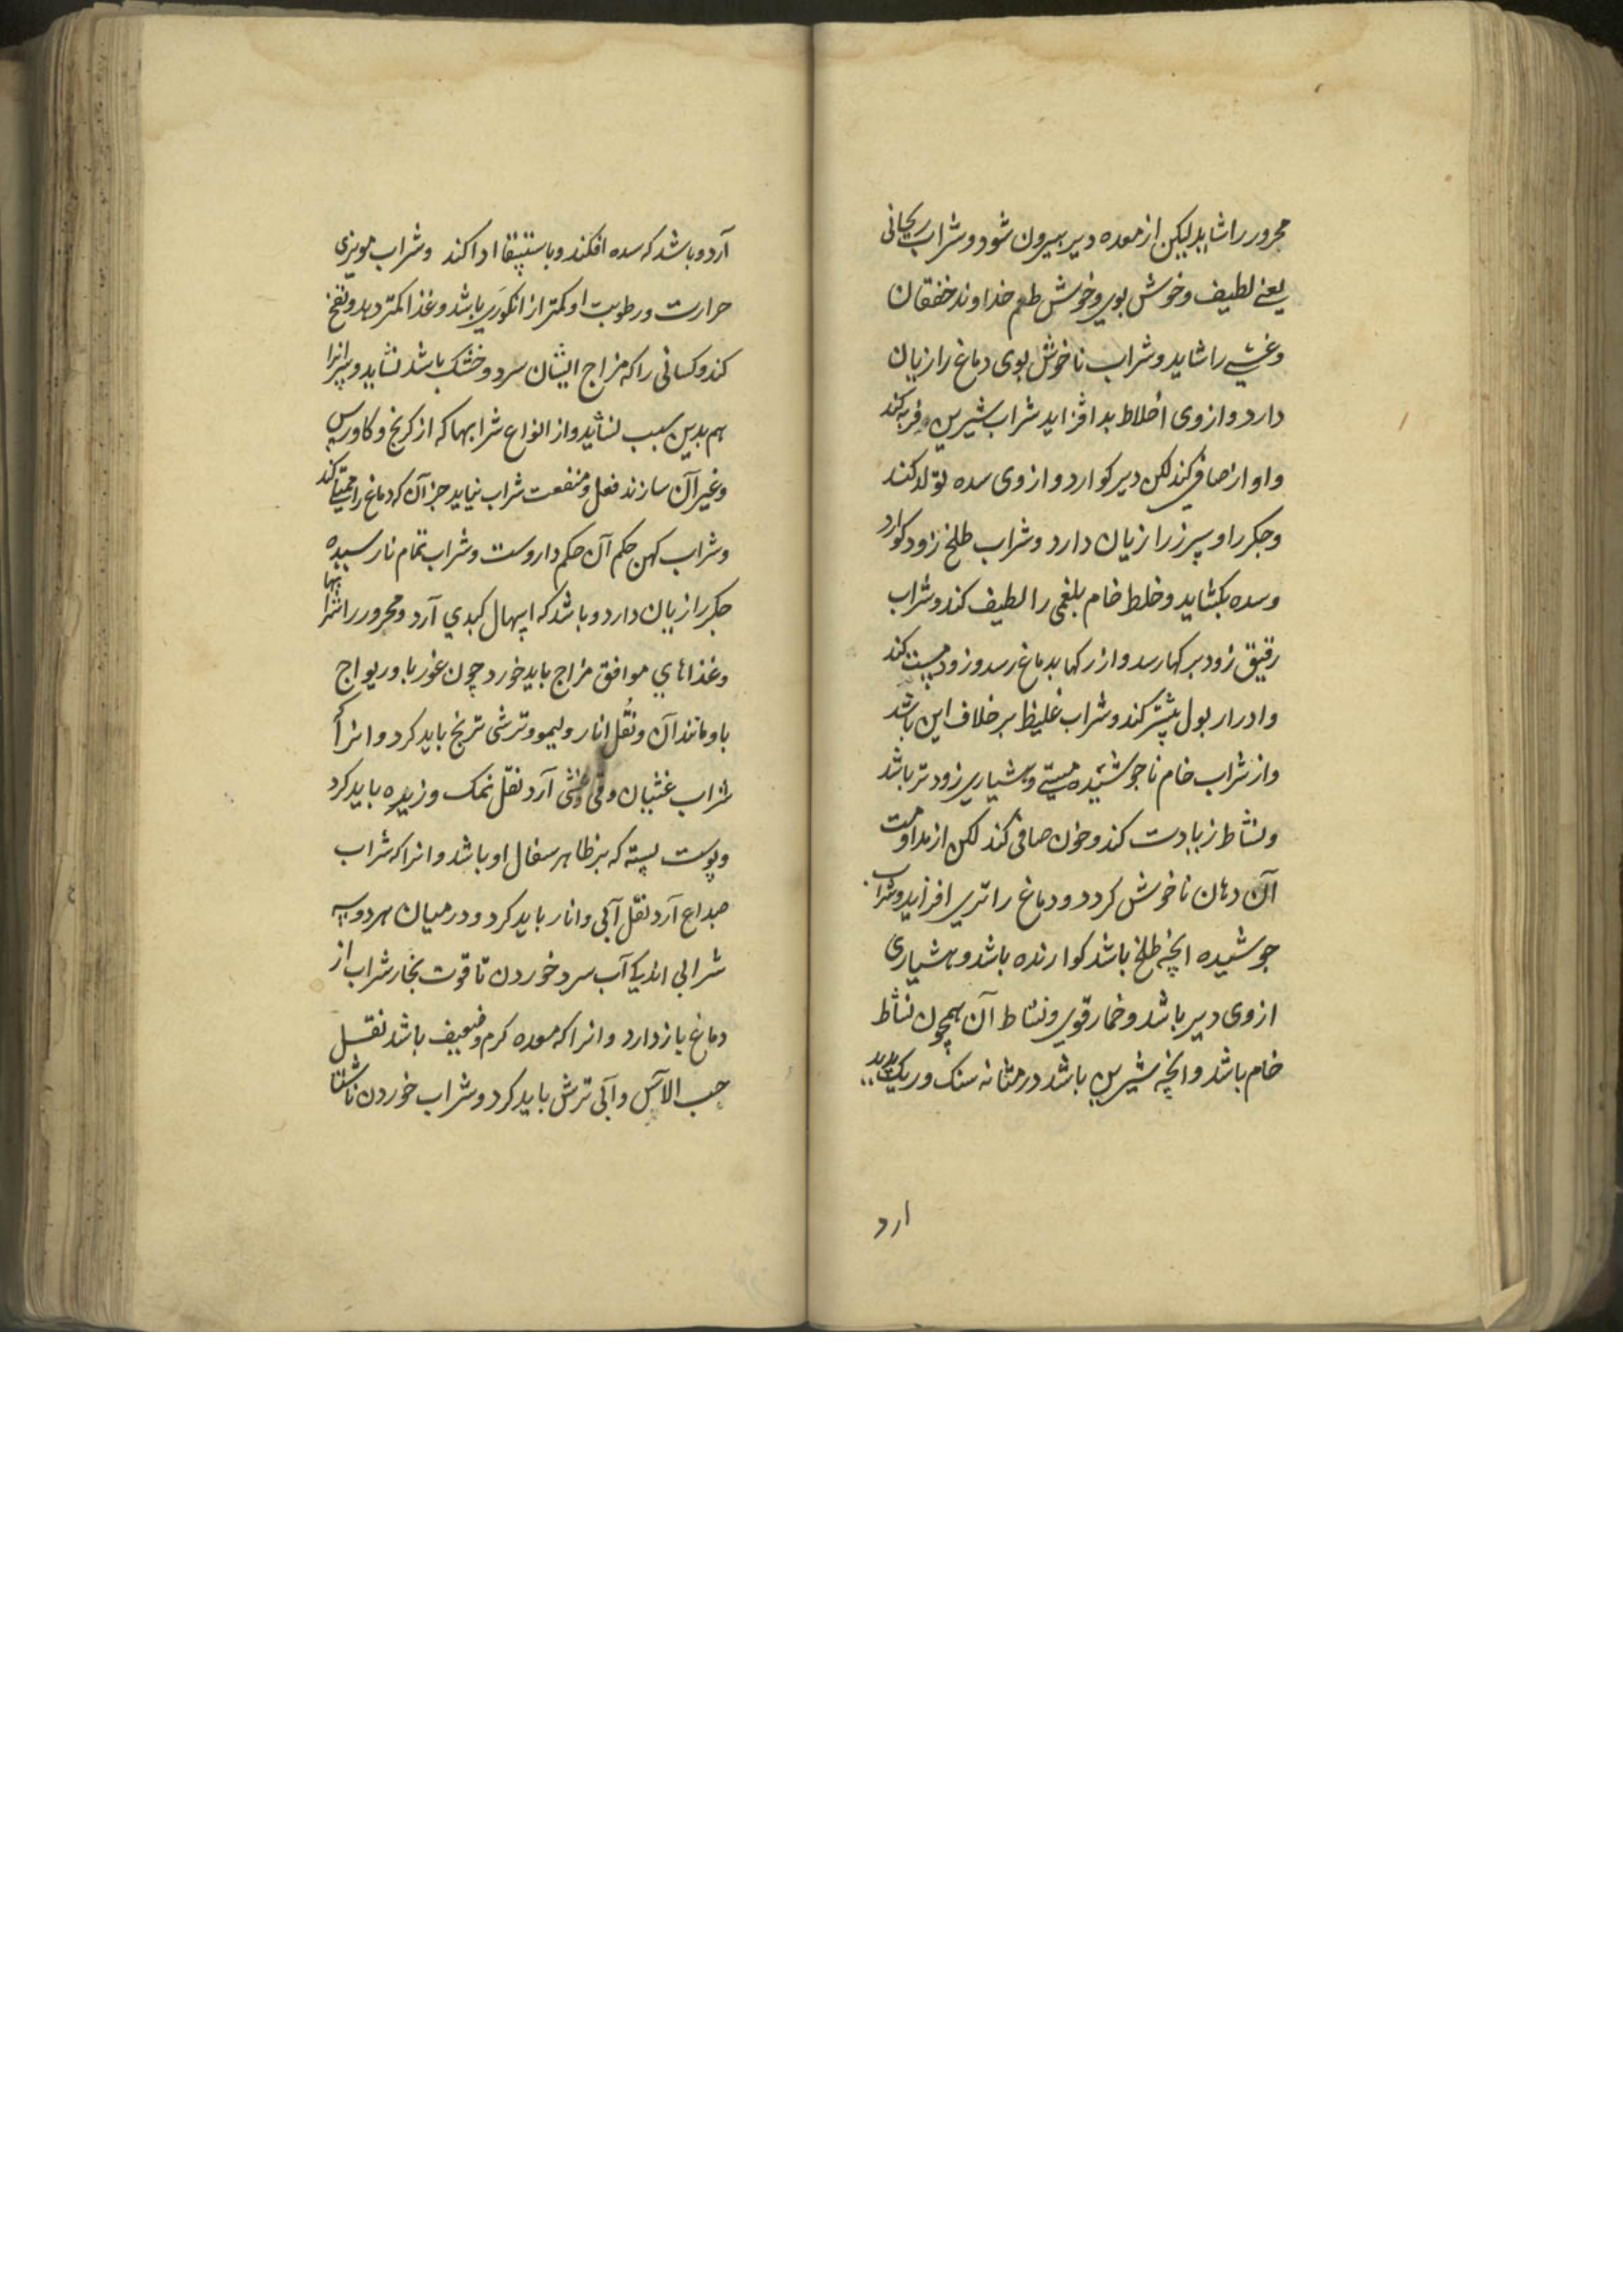 محرور را شاید لیکن از معده دیر بیرون شود و شراب ریحانی
یعنی لطیف و خوش بوی و خوش طعم خداوند خفقان
و غشی را شاید و شراب ناخوش بوی دماغ را زیان
دارد و از وی اخلاط بد افزاید شراب شیرین فربه کند
و اواز صافی کند لکن دیر کوارد و از وی سده تولد کند
و جکر را و سپرز را زیان دارد و شراب طلخ زود کوارد
و سده بکشاید و خلط خام بلغمی را لطیف کند و شراب
رقیق زود برکها رسد و از رکها بدماغ رسد و زود مست کند
و ادرار بول بیشتر کند و شراب غلیظ بر خلاف این باشد
و از شراب خام ناجوشیده مستی و هشیاری زودتر باشد
و نشاط زیادت کند و خون صافی کند لکن از مداومت
آن دهان ناخوش کردد و دماغ را تری افزاید و شراب
جوشیده انچه طلخ باشد کوارنده باشد و هشیاری
از وی دیر باشد و خمار قوی و نشاط آن همچون نشاط
خام باشد و انچه شیرین باشد در مثانه سنک و ریک پدید
ارد
آرد و باشد که سده افکند و باستسقا ادا کند و شراب مویزی
حرارت و رطوبت او کمتر از انکوری باشد و غذا کمتر دهد و نفخ
کند و کسانی را که مزاج ایشان سرد و خشک باشد نشاید و پیرانرا
هم بدین سبب نشاید و از انواع شرابها که از کرنج و کاورس
و غیر آن سازند فعل و منفعت شراب نیاید جز آن که دماغ را ممتلی کند
و شراب کهن حکم آن حکم داروست و شراب تمام نارسیده
جکر را زیان دارد و باشد که اسهال کبدی آرد و محرور را شرابها
و غذاهای موافق مزاج باید خورد چون غوربا و ریواج
با و مانند آن و نقل انار و لیمو و ترشی ترنج باید کرد و انرا که
شراب غثیان و قی و غشی آرد نقل نمک و زیره باید کرد
و پوست پسته که بر ظاهر سفال او باشد و انرا که شراب
صداع آرد نقل آبی و انار باید کرد و در میان هر دو سه
شرابی اندکی آب سرد خوردن تا قوت بخار شراب از
دماغ باز دارد و انرا که معده کرم و ضعیف باشد نقل
حب الآس و آبی ترش باید کرد و شراب خوردن ناشتا